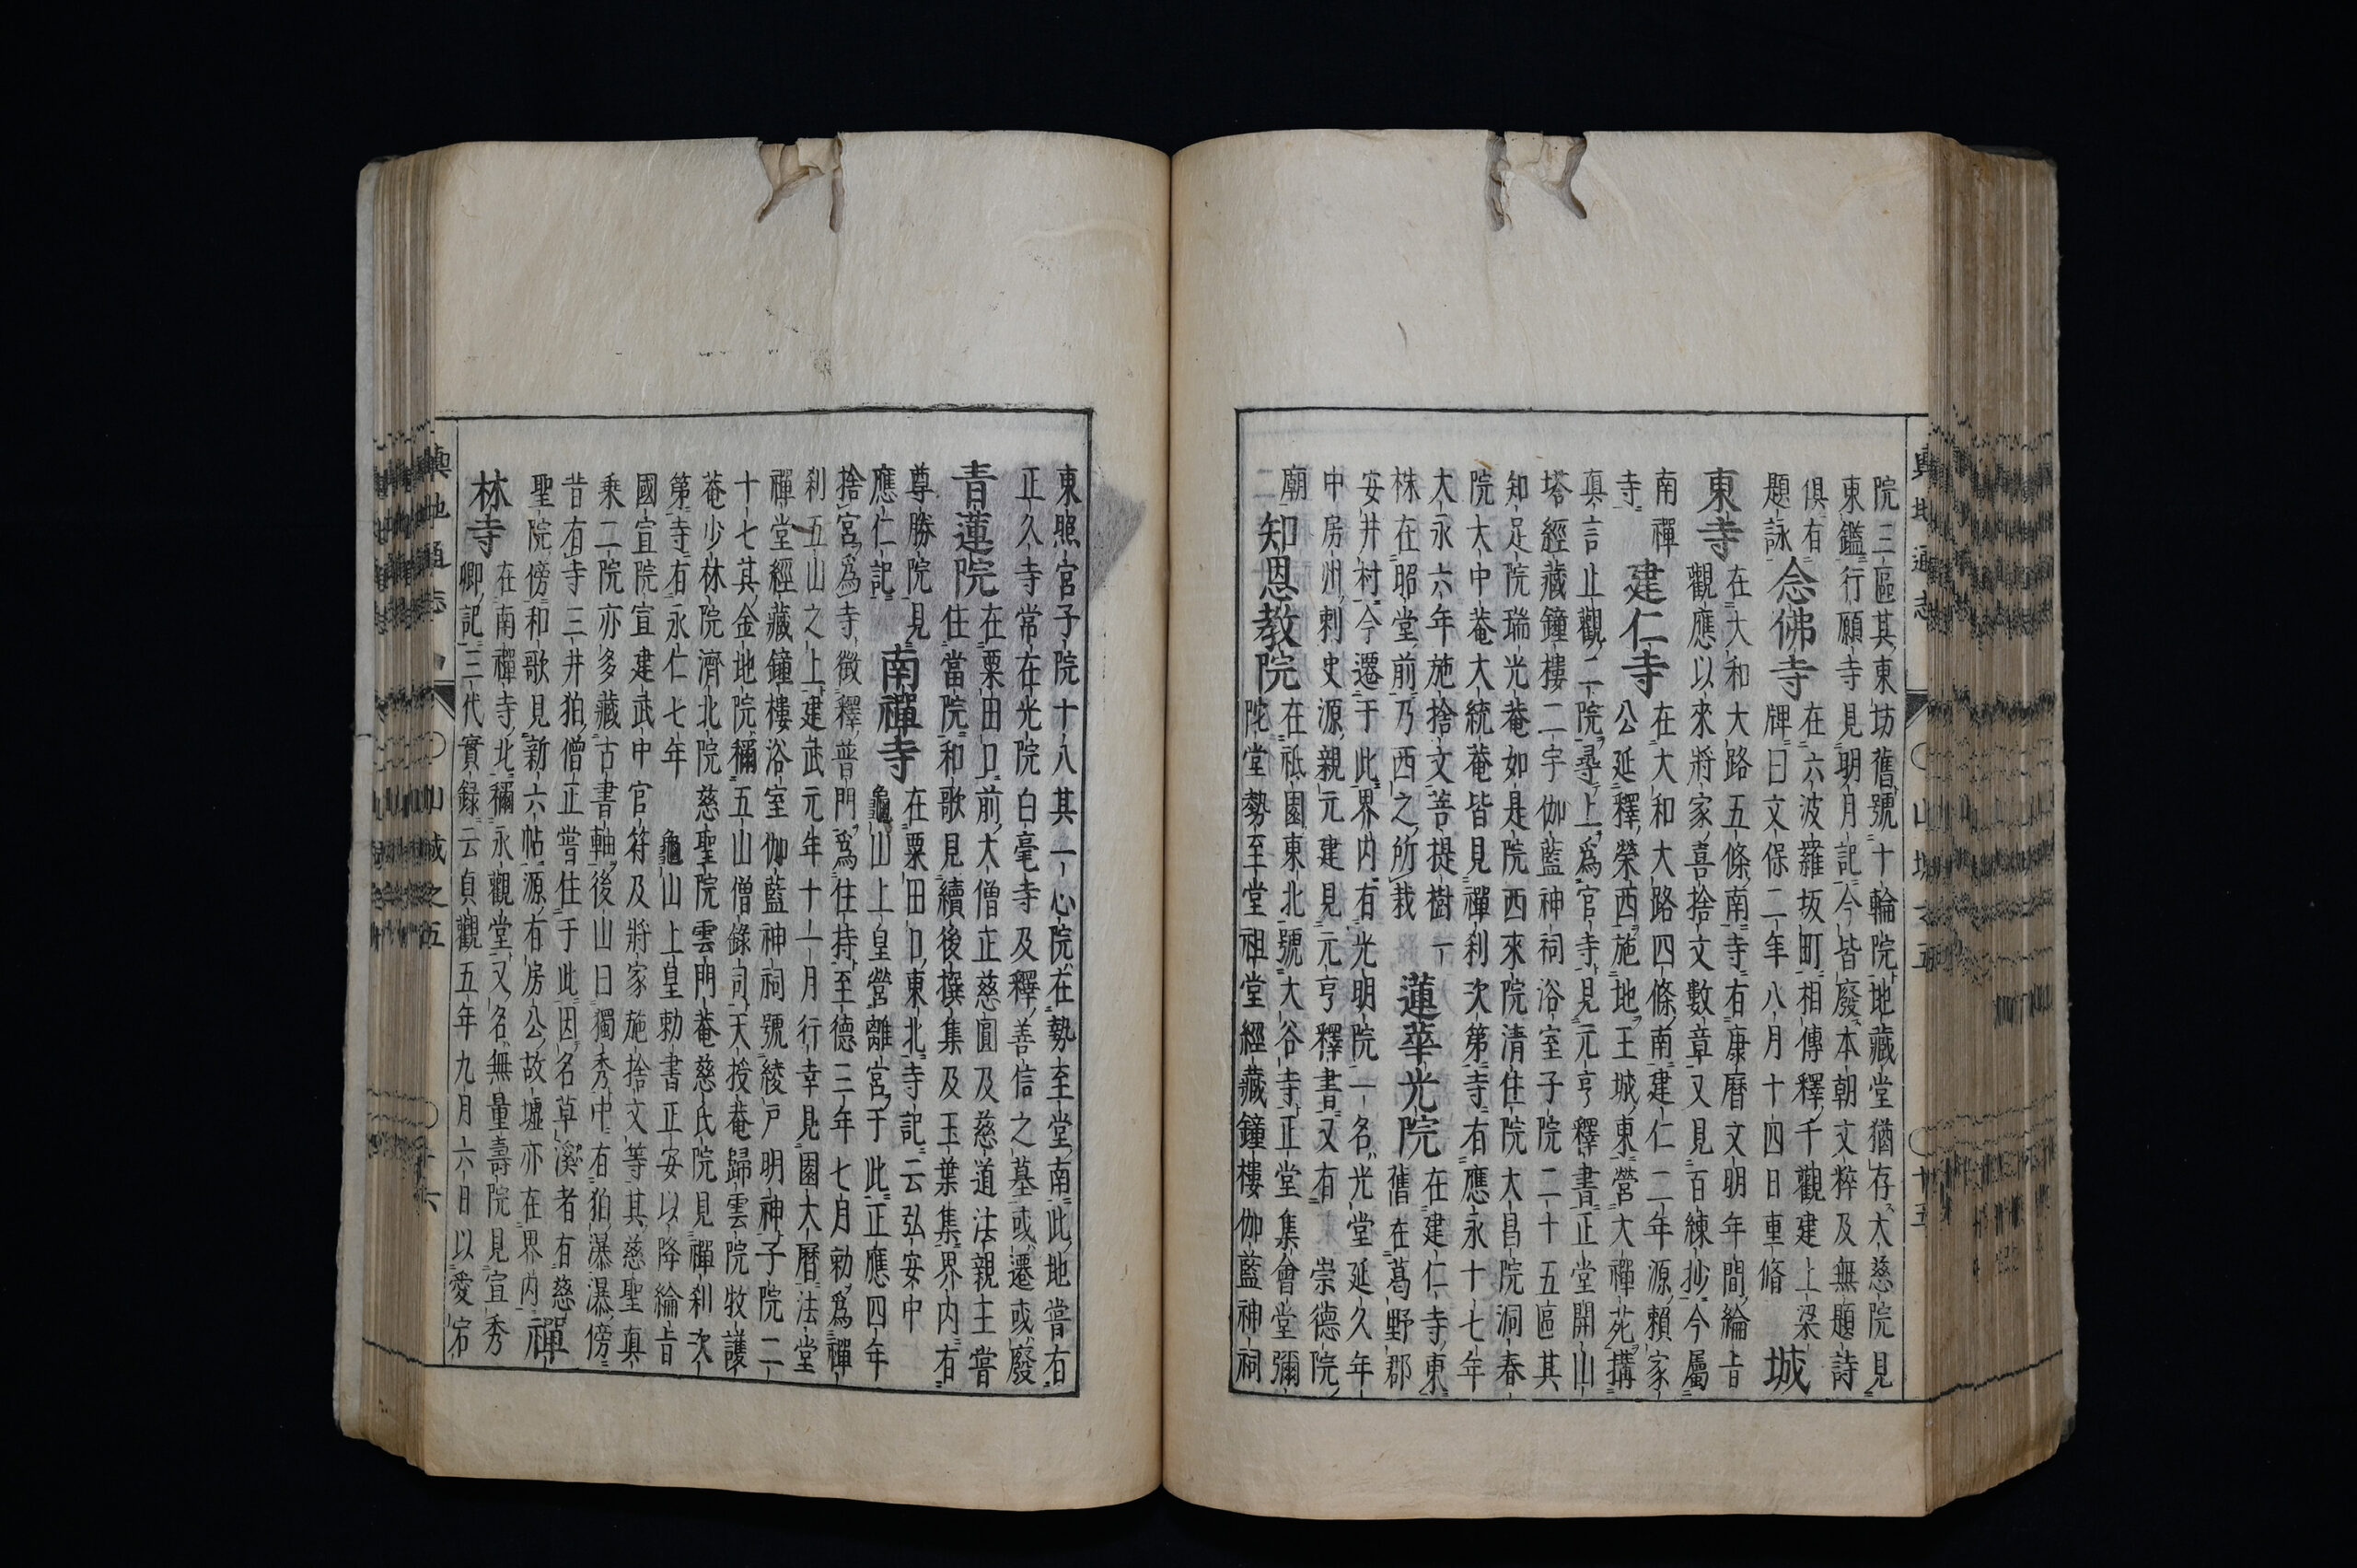 院三區其東坊舊號十輪院地藏堂猶存大慈院見
東鑑行願寺見明月記今皆廢本朝文粹及無題詩
俱有
題詠
念佛寺
在六波羅坂町相傳釋千觀建上梁
牌曰文保二年八月十四日重脩
城
東寺
在大和大路五條南寺有康曆文明年間綸旨
觀應以來將家喜捨文數章又見百練抄今屬
南禪
寺
建仁寺
在大和大路四條南建仁二年源賴家
公延釋榮西施地王城東營大禪苑搆
真言止觀二院尋上爲官寺見元亨釋書正堂開山
塔經藏鐘樓二宇伽藍神祠浴室子院二十五區其
知足院瑞光菴如是院西來院清住院大昌院洞春
院大中菴大統菴皆見禪刹次第寺有應永十七年
大永六年施捨文菩提樹一
株在昭堂前乃西之所栽
蓮華光院
在建仁寺東
舊在葛野郡
安井村今遷于此界内有光明院一名光堂延久年
中房州刺史源親元建見元亨釋書又有 崇德院
廟
知恩教院
在祇園東北號大谷寺正堂集會堂彌
陀堂勢至堂祖堂經藏鐘樓伽藍神祠
東照宮子院十八其一心院在勢至堂南此地嘗有
正久寺常在光院白毫寺及釋善信之墓或遷或廢
青蓮院
在粟田口前大僧正慈圓及慈道法親主嘗
住當院和歌見續後撰集及玉葉集界内有
尊勝院見
應仁記
南禪寺
在粟田口東北寺記云弘安中
龜山上皇營離宮于此正應四年
捨宮爲寺徴釋普門爲住持至德三年七月勅爲禪
刹五山之上建武元年十一月行幸見園大曆法堂
禪堂經藏鐘樓浴室伽藍神祠號綾戸明神子院二
十七其金地院稱五山僧錄司天授菴歸雲院牧護
菴少林院濟北院慈聖院雲門菴慈氏院見禪刹次
第寺有永仁七年 龜山上皇勅書正安以降綸旨
國宣院宣建武中官符及將家施捨文等其慈聖真
乘二院亦多藏古書軸後山曰獨秀中有狛瀑瀑傍
昔有寺三井狛僧正嘗住于此因名草溪者有慈
聖院傍和歌見新六帖源有房公故墟亦在界内
禪
林寺
在南禪寺北稱永觀堂又名無量壽院見宣秀
卿記三代實録云貞觀五年九月六日以愛宕
輿地通志
山城之五
十五